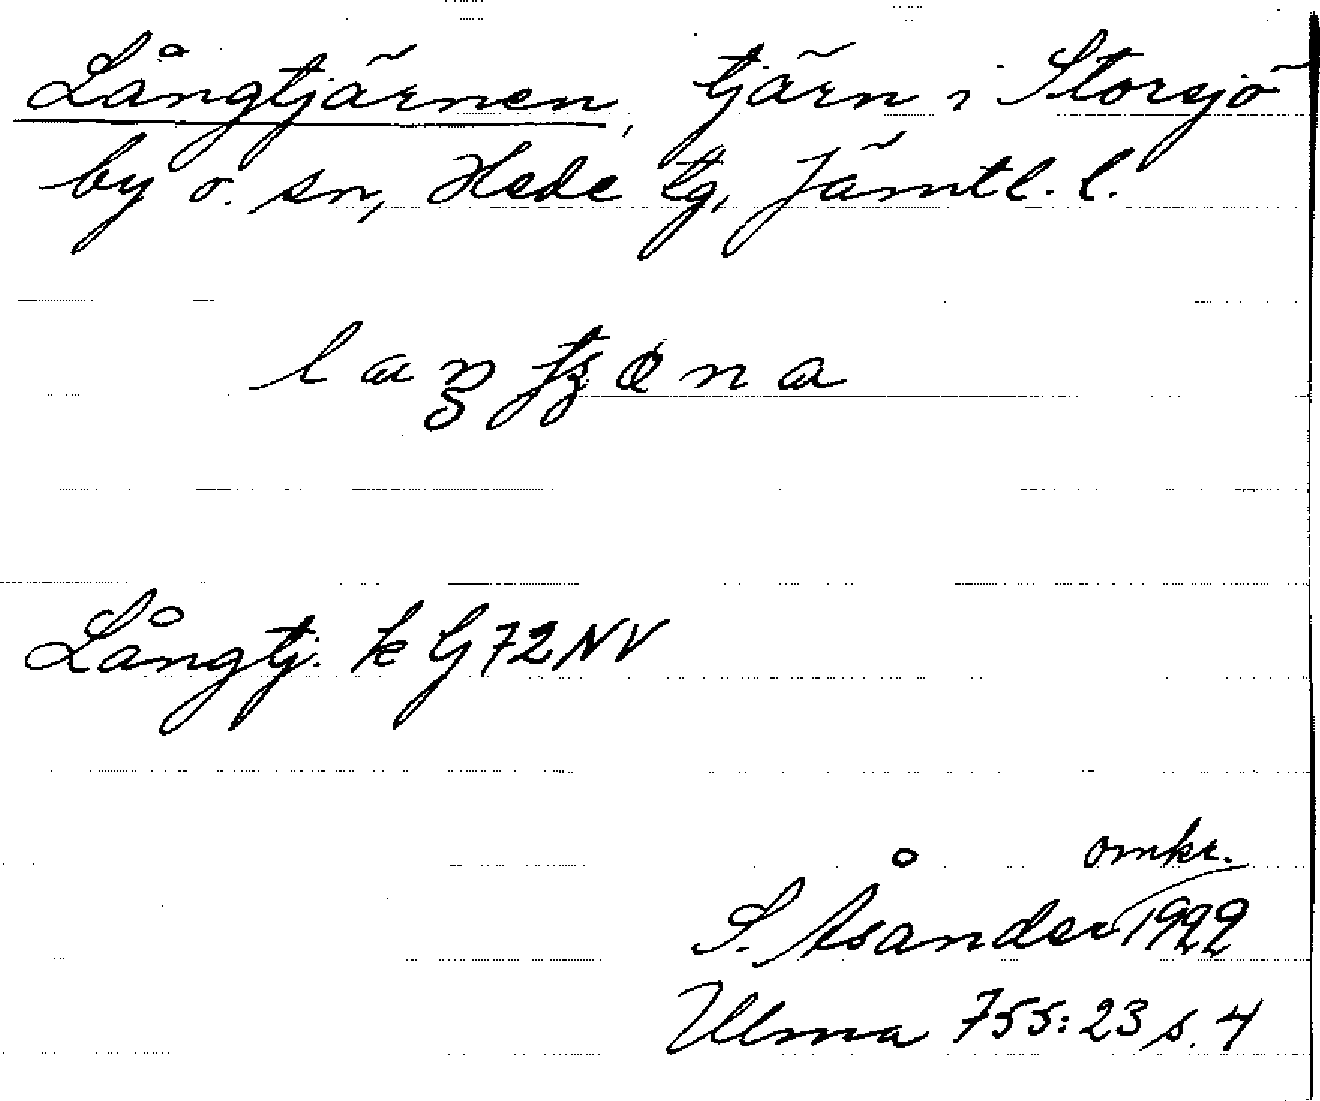 Långtjärnen, tjärn i Storsjö
by o. sn, Hede tg, Jämtl. l.
Långtj. k G72NV
omkr.
S. Åsander 1922
Ulma 755:23 s. 4